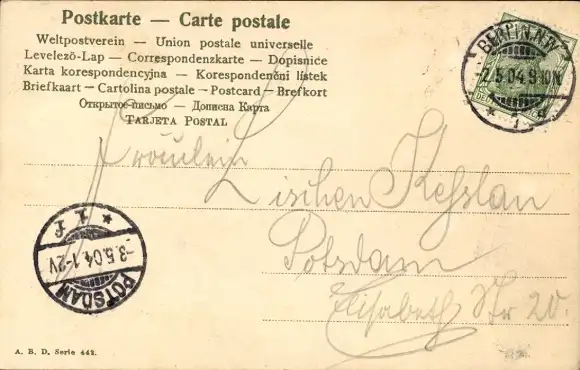 Postkarte — Carte postale
Weltpostverein — Union postale universelle
Levelező-Lap — Correspondenzkarte — Dopisnice
Karta korespondencyjna — Korespondenční lístek
Briefkaart — Cartolina postale — Postcard — Brefkort
Открытое письмо — Дописна Карта
TARJETA POSTAL
BERLIN.N.W.
-2.5.04.9-10N.
* 1 *
Fräulein
Lischen Kesslau
Potsdam
Elisabeth Str 20.
* 1 f
-3.5.04.1-2V
POTSDAM
A. B. D. Serie 442.